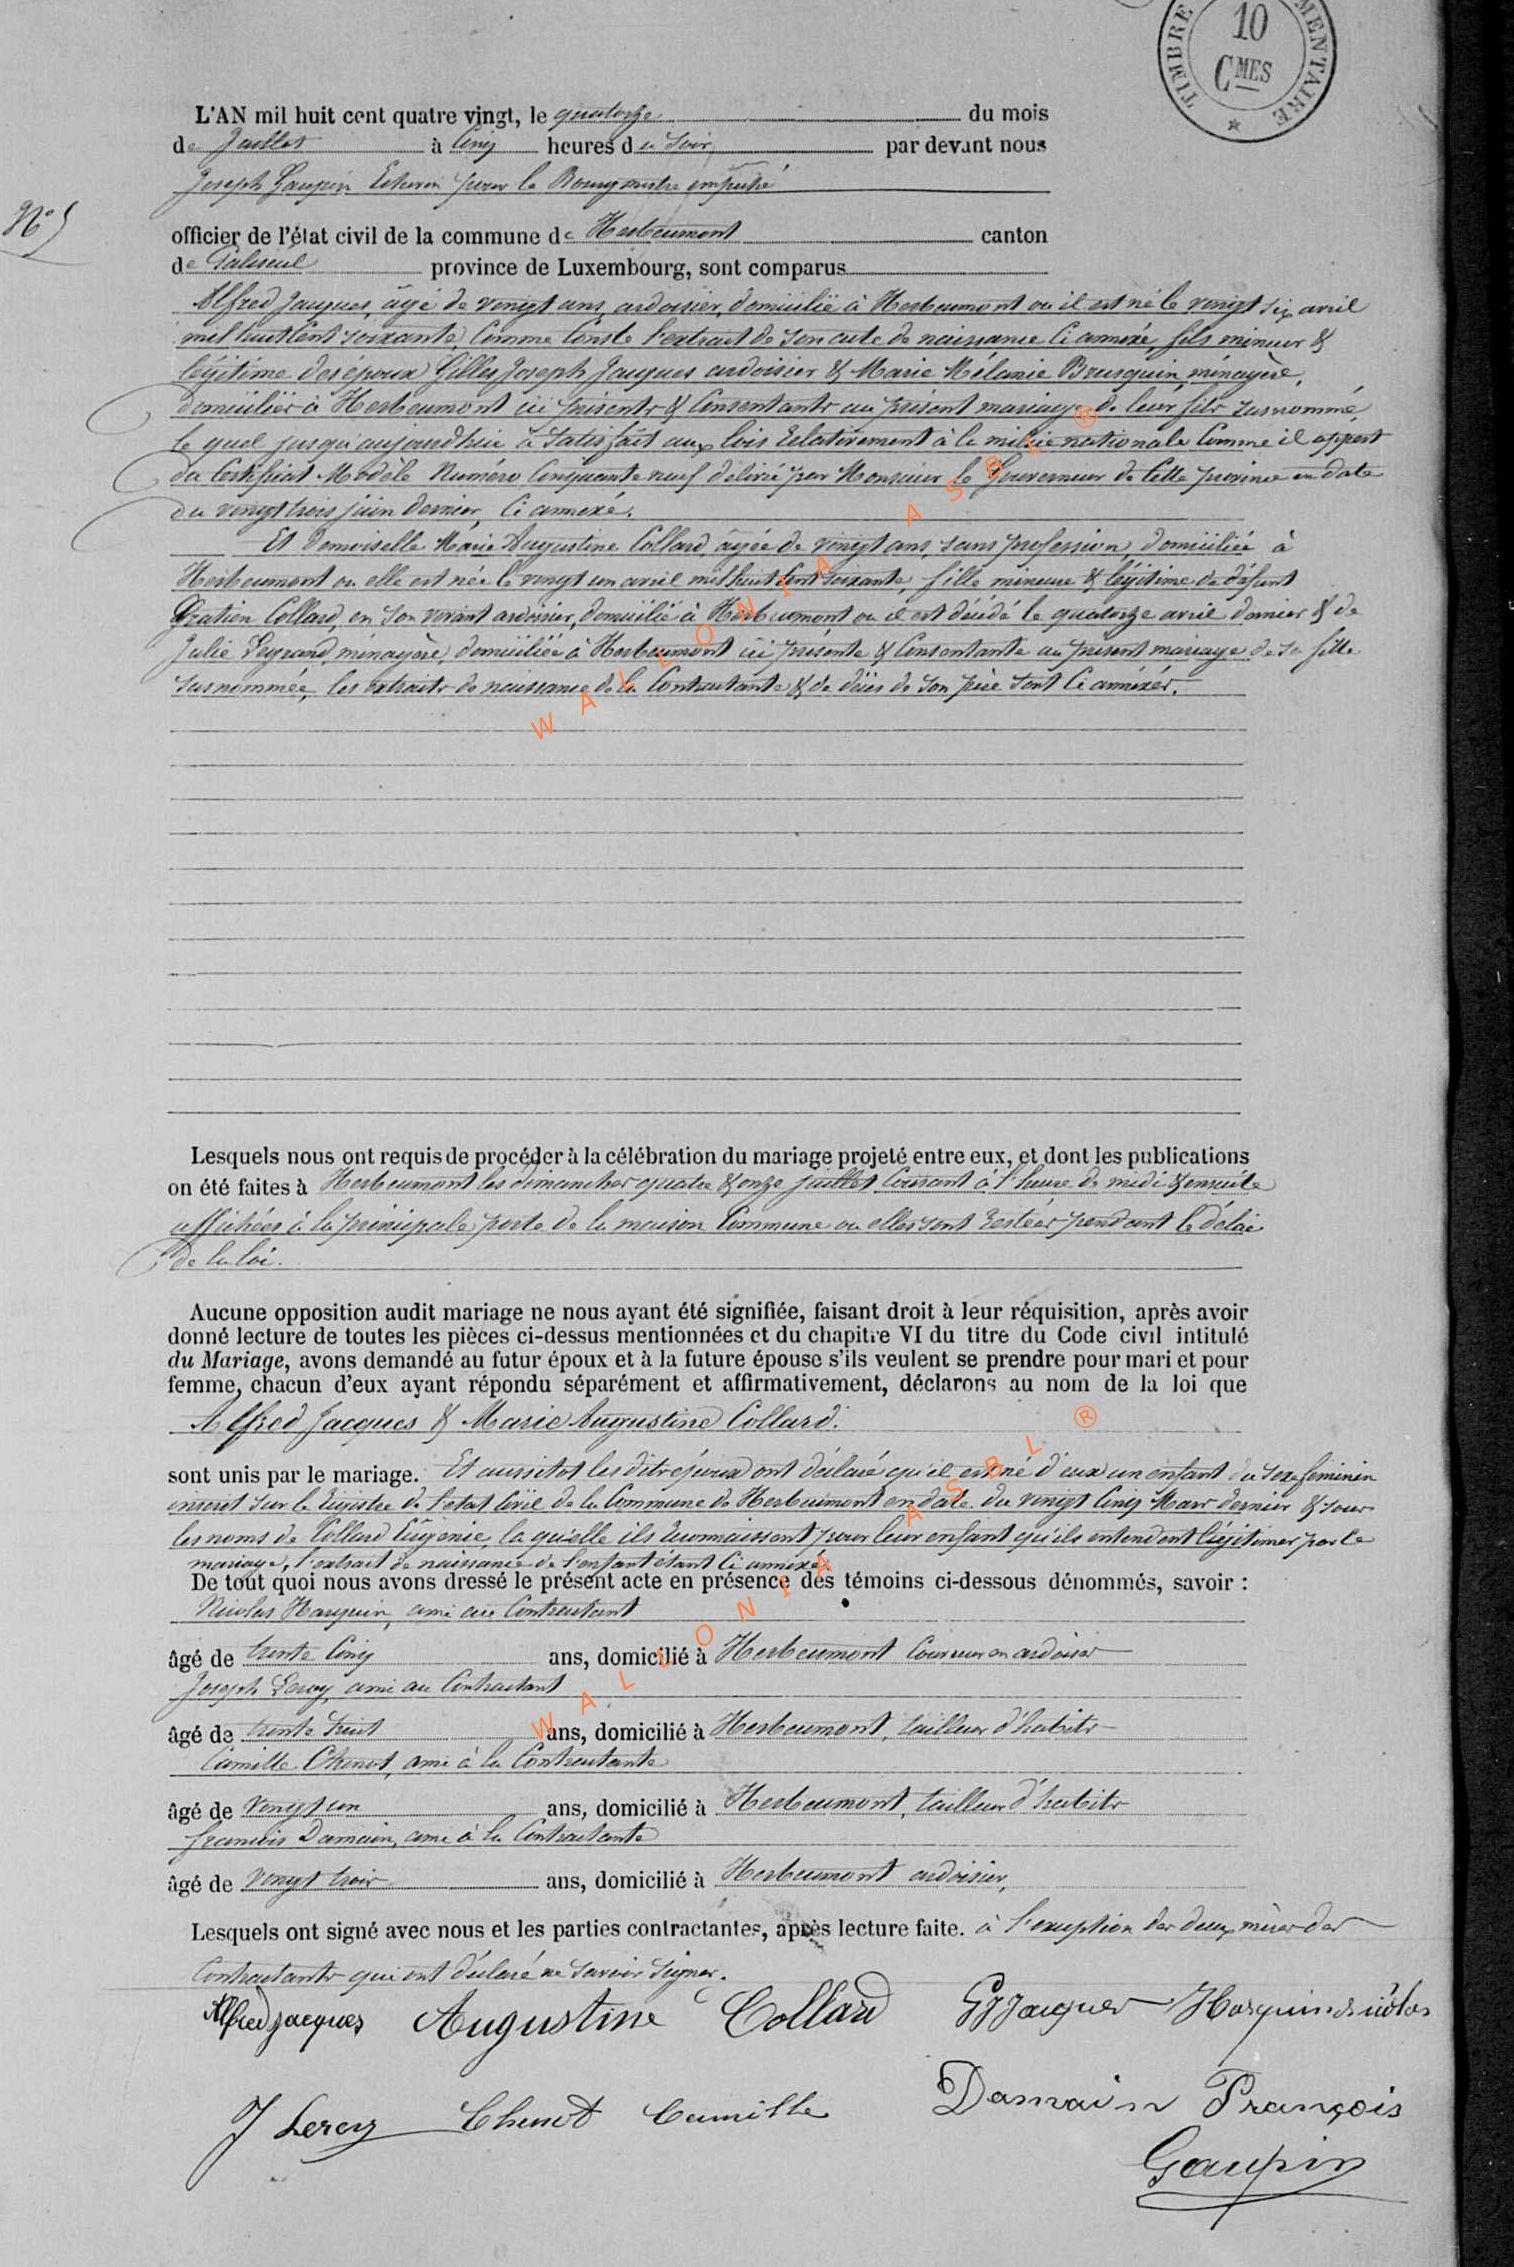 TIMBRE
MENTAIRE
10
CMES
L'AN mil huit cent quatre vingt, le quatorze du mois
de Juillet à Cinq heures du soir, par devant nous
Joseph Gaupin Echevin pour le Bourgmestre empêché
N° 5
officier de l'état civil de la commune de Herbeumont canton
de Paliseul province de Luxembourg, sont comparus
Alfred Jacques, âgé de vingt ans, ardoisier, domicilié à Herbeumont ou il est né le vingt six avril
mil huit Cent soixante, Comme Conste l'extrait de son acte de naissance Ci annexé, fils mineur &
légitime des époux Gilles Joseph Jacques ardoisier & Marie Mélanie Brusquin, ménagère,
domiciliés à Herbeumont ici présents & Consentants au présent mariage de leur fils susnommé
le quel jusqu'aujourdhui à satisfait aux lois relativement à la milice nationale Comme il appert
du Certificat Modèle Numéro Cinquante neuf délivré par Monsieur le Gouverneur de Cette province en date
du vingt trois juin dernier, Ci annexé.
Et demoiselle Marie Augustine Collard, âgée de vingt ans, sans profession, domiciliée à
Herbeumont ou elle est née le vingt un avril mil huit Cent soixante, fille mineure & légitime de défunt
Gratien Collard, en son vivant ardoisier, domicilié à Herbeumont ou il est décédé le quatorze avril dernier & de
Julie Legrand, ménagère, domiciliée à Herbeumont ici présente & Consentante au présent mariage de sa fille
susnommée, les extraits de naissance de la Contractante & de décès de son père sont Ci annexés.
WALLONIA ASBL ®
Lesquels nous ont requis de procéder à la célébration du mariage projeté entre eux, et dont les publications
on été faites à Herbeumont les dimanches quatre & onze juillet Courant à l'heure de midi & ensuite
affichées à la principale porte de la maison Commune ou elles sont restées pendant le délai
de la loi.
Aucune opposition audit mariage ne nous ayant été signifiée, faisant droit à leur réquisition, après avoir
donné lecture de toutes les pièces ci-dessus mentionnées et du chapitre VI du titre du Code civil intitulé
du Mariage, avons demandé au futur époux et à la future épouse s'ils veulent se prendre pour mari et pour
femme, chacun d'eux ayant répondu séparément et affirmativement, déclarons au nom de la loi que
Alfred Jacques & Marie Augustine Collard.
sont unis par le mariage. Et aussitot les dits époux ont déclaré qu'il est né d'eux un enfant du sexe féminin
inscrit sur le registre de l'état Civil de la Commune de Herbeumont en date du vingt Cinq Mars dernier & sous
les noms de Collard Eugénie, la quelle ils reconnaissent pour leur enfant qu'ils entendent légitimer par le
mariage, l'extrait de naissance de l'enfant étant Ci annexé.
De tout quoi nous avons dressé le présent acte en présence des témoins ci-dessous dénommés, savoir :
Nicolas Harquin, ami au Contractant
âgé de trente Cinq ans, domicilié à Herbeumont Couvreur en ardoises
Joseph Leroy, ami au Contractant
âgé de trente huit ans, domicilié à Herbeumont, tailleur d'habits
Camille Chenot, ami à la Contractante
âgé de vingt un ans, domicilié à Herbeumont, tailleur d'habits
François Damain, ami à la Contractante
âgé de vingt trois ans, domicilié à Herbeumont ardoisier,
WALLONIA ASBL ®
Lesquels ont signé avec nous et les parties contractantes, après lecture faite. à l'exception des deux mères des
Contractants qui ont déclaré ne savoir signer.
Alfred jacques Augustine Collard GJ Jacques Harquin nicolas
J Leroy Chenot Camille Damain François
Gaupin